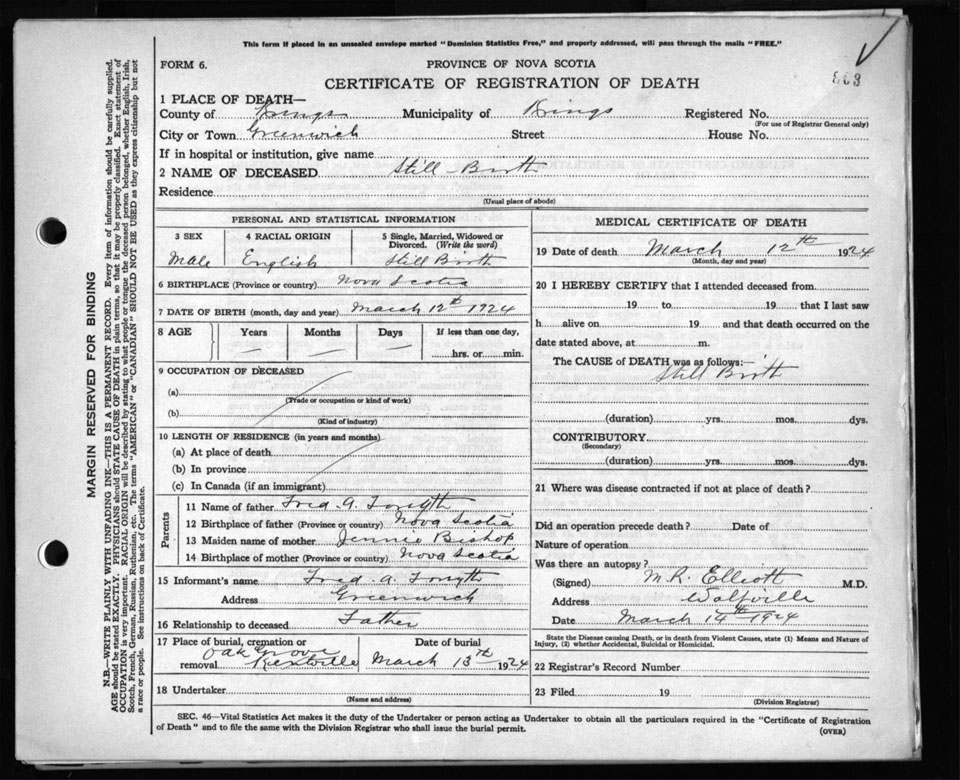 This form if placed in an unsealed envelope marked "Dominion Statistics Free," and properly addressed, will pass through the mails "FREE."
FORM 6.
PROVINCE OF NOVA SCOTIA
863
CERTIFICATE OF REGISTRATION OF DEATH
1 PLACE OF DEATH—
County of Kings Municipality of Kings Registered No.
(For use of Registrar General only)
City or Town Greenwich Street House No.
If in hospital or institution, give name
2 NAME OF DECEASED Still Birth
Residence
(Usual place of abode)
PERSONAL AND STATISTICAL INFORMATION
3 SEX 4 RACIAL ORIGIN 5 Single, Married, Widowed or Divorced. (Write the word)
Male English Still Birth
6 BIRTHPLACE (Province or country) Nova Scotia
7 DATE OF BIRTH (month, day and year) March 12th 1924
8 AGE Years Months Days If less than one day,
— — — hrs. or min.
9 OCCUPATION OF DECEASED
(a)
(Trade or occupation or kind of work)
(b)
(Kind of industry)
10 LENGTH OF RESIDENCE (in years and months)
(a) At place of death
(b) In province
(c) In Canada (if an immigrant)
Parents
11 Name of father Fred A. Forsyth
12 Birthplace of father (Province or country) Nova Scotia
13 Maiden name of mother Jennie Bishop
14 Birthplace of mother (Province or country) Nova Scotia
15 Informant's name Fred A. Forsyth
Address Greenwich
16 Relationship to deceased Father
17 Place of burial, cremation or removal Oak Grove Kentville
Date of burial
March 13th 1924
18 Undertaker
(Name and address)
MEDICAL CERTIFICATE OF DEATH
19 Date of death March 12th 1924
(Month, day and year)
20 I HEREBY CERTIFY that I attended deceased from
19 to 19 that I last saw
h alive on 19 and that death occurred on the
date stated above, at m.
The CAUSE of DEATH was as follows:—
Still Birth
(duration) yrs. mos. dys.
CONTRIBUTORY
(Secondary)
(duration) yrs. mos. dys.
21 Where was disease contracted if not at place of death?
Did an operation precede death? Date of
Nature of operation
Was there an autopsy?
(Signed) M. R. Elliott M.D.
Address Wolfville
Date March 14th 1924
State the Disease causing Death, or in death from Violent Causes, state (1) Means and Nature of
Injury, (2) whether Accidental, Suicidal or Homicidal.
22 Registrar's Record Number
23 Filed 19
(Division Registrar)
SEC. 46—Vital Statistics Act makes it the duty of the Undertaker or person acting as Undertaker to obtain all the particulars required in the "Certificate of Registration
of Death" and to file the same with the Division Registrar who shall issue the burial permit.
(OVER)
MARGIN RESERVED FOR BINDING
N.B.—WRITE PLAINLY WITH UNFADING INK—THIS IS A PERMANENT RECORD. Every item of information should be carefully supplied.
AGE should be stated EXACTLY. PHYSICIANS should STATE CAUSE OF DEATH in plain terms, so that it may be properly classified. Exact statement of
OCCUPATION is very important. RACIAL ORIGIN will be described by stating to what people or tongue the deceased person belonged, whether English, Irish,
Scotch, French, German, Russian, Ruthenian, etc. The terms "AMERICAN" or "CANADIAN" SHOULD NOT BE USED as they express citizenship but not
a race or people. See instructions on back of Certificate.